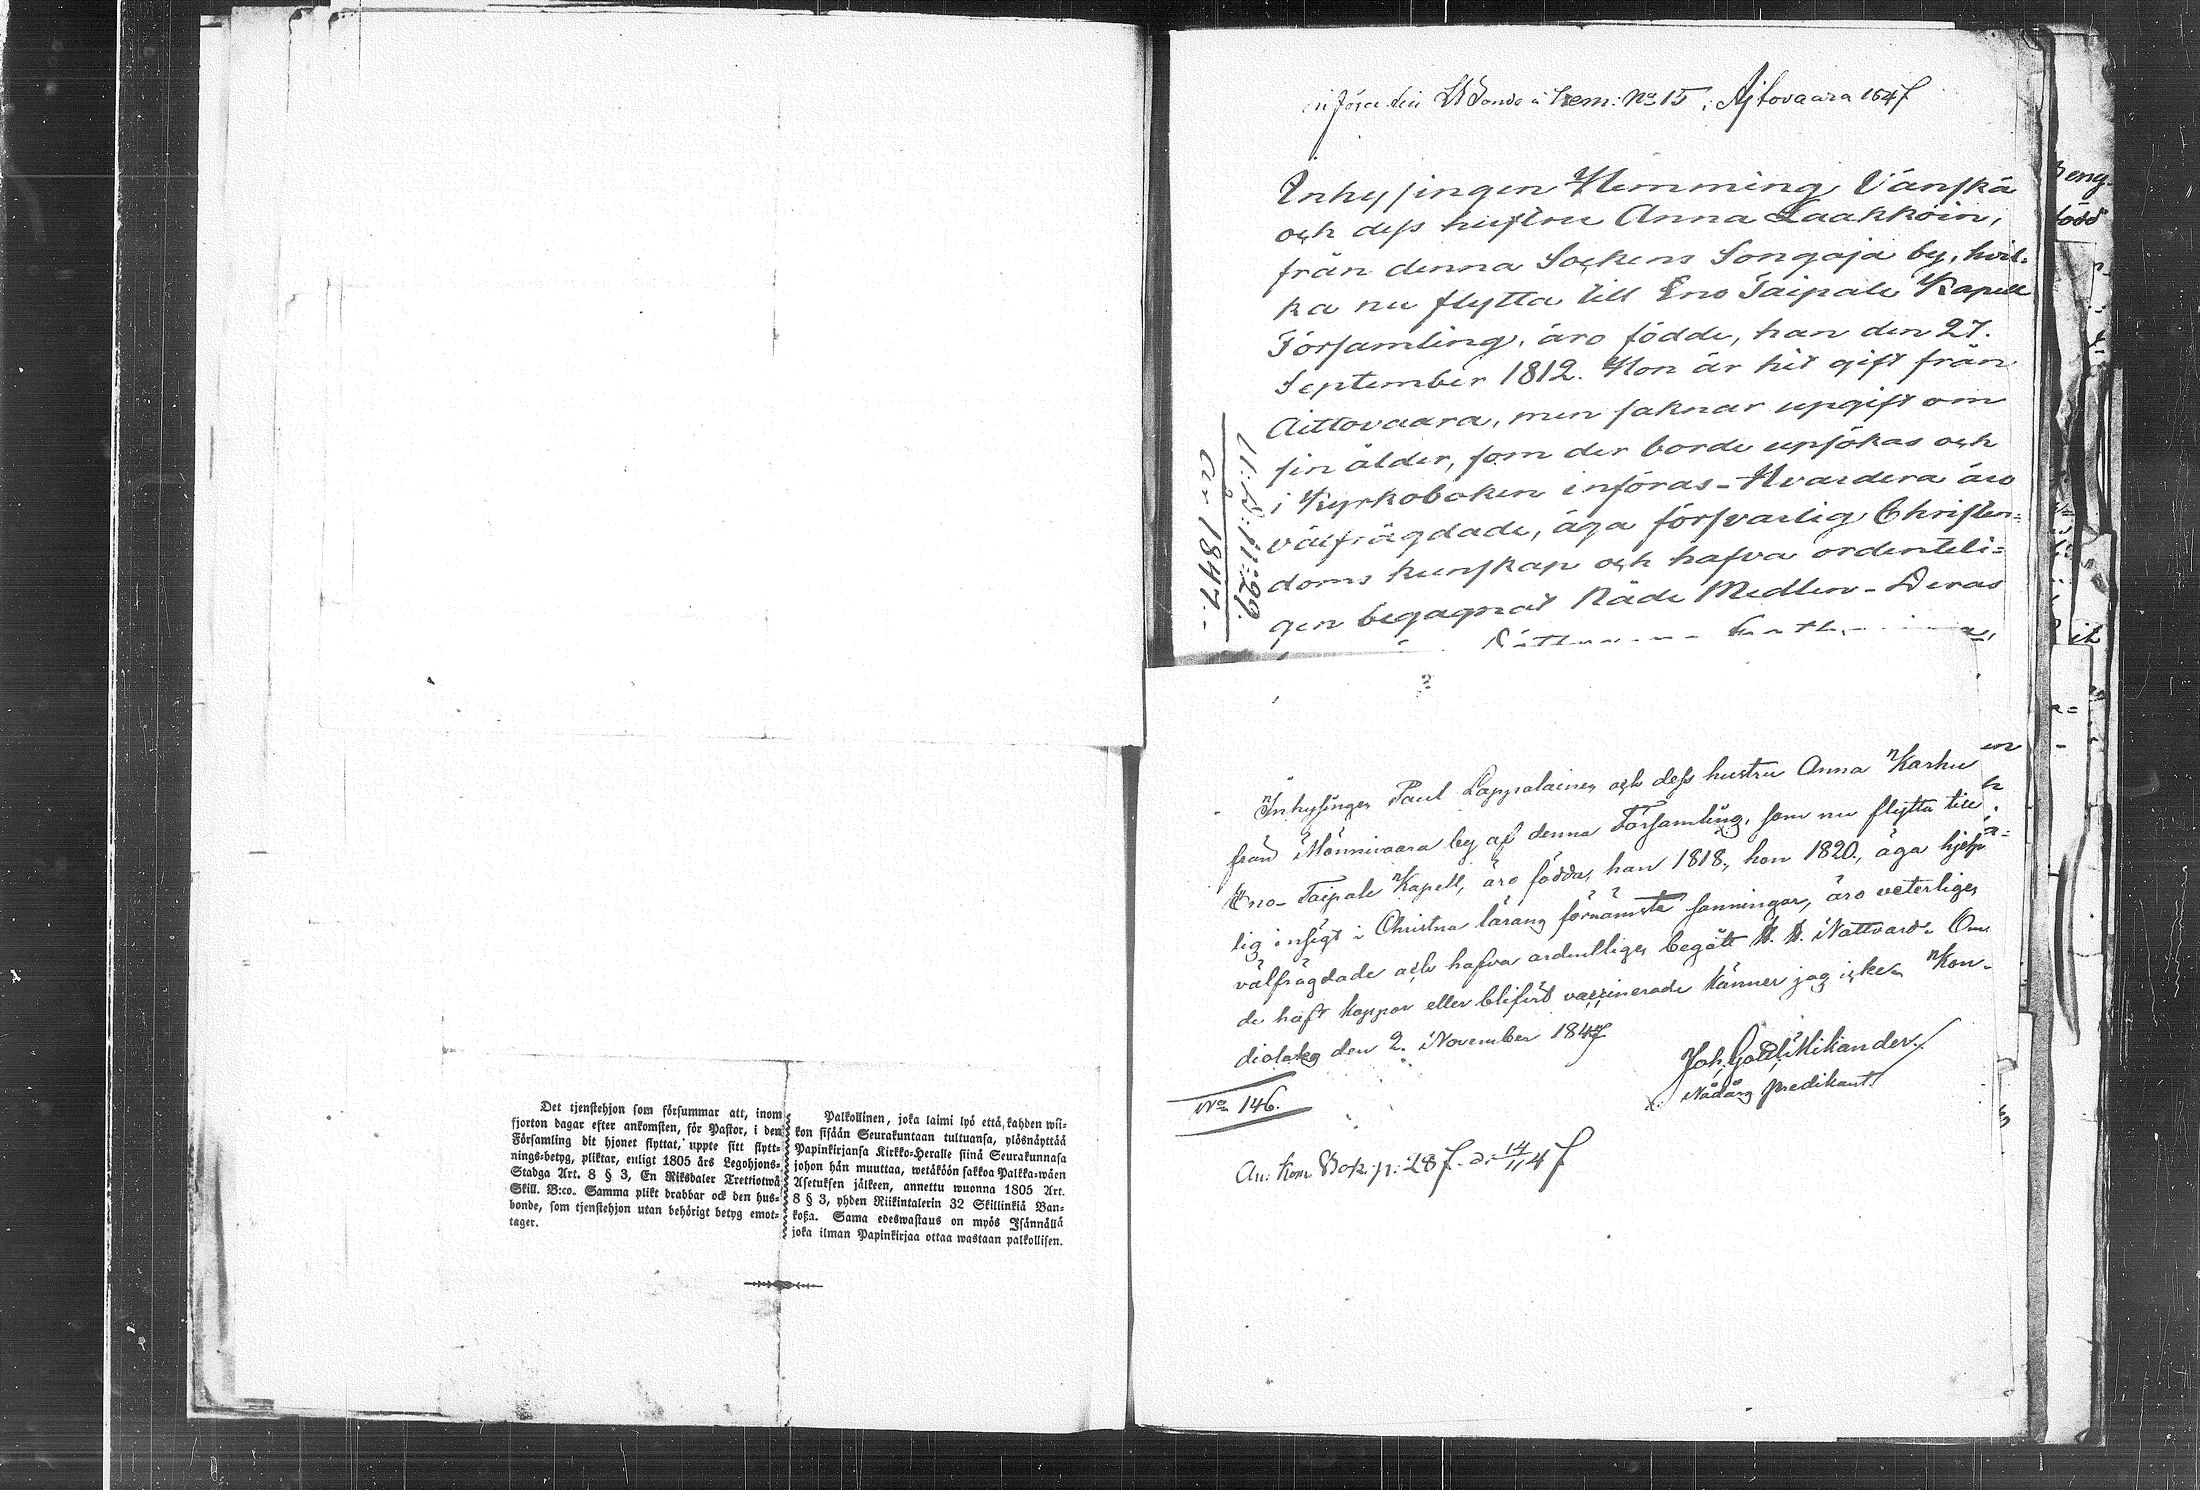 Det tjenstehjon som försummar att, inom
fjorton dagar efter ankomsten, för Pastor, i den
Församling dit hjonet flyttat, uppte sitt flytt-
nings-betyg, pliktar, enligt 1805 års Legohjons-
Stadga Art. 8 § 3, En Riksdaler Trettiotwå
Skill. B:co. Samma plikt drabbar ock den hus-
bonde, som tjenstehjon utan behörigt betyg emot-
tager.
Palkollinen, joka laimi lyö että, kahden wii-
kon sisään Seurakuntaan tultuansa, ylösnäyttää
Papinkirjansa Kirkko-Heralle siinä Seurakunnasa
johon hän muuttaa, wetäköön sakkoa Palkka-wäen
Asetuksen jälkeen, annettu wuonna 1805 Art.
8 § 3, yhden Riikintalerin 32 Skillinkiä Ban-
koßa. Sama edeswastaus on myös Isännällä
joka ilman Papinkirjaa ottaa wastaan palkollisen.
No 15 Ajtovaara 1847
Inhysingen Hemming Vänskä
och dess hustru Anna Laakkoin,
från denna Sockens Songaja by, hvil-
ka nu flytta till Eno Taipale Kapell
Församling, äro födde, han den 27.
September 1812. Hon är hit gift från
Aittovaara, men saknar upgift om
sin ålder, som der borde upsökas och
i Kyrkoboken införas - Hvardera äro
välfrägdade, äga försvarlig Christen-
doms kunskap och hafva ordenteli-
gen begagnat Nåde Medlen - Deras
År 1847.-
Inhysingen Paul Lappalainen och dess hustru Anna Karhu
från Mönnivaara by af denna Församling, som nu flytta till
Eno-Taipale Kapell, äro födda, han 1818, hon 1820, äga hjelp
lig insigt i Christna lärans förnämsta sanningar, äro veterligen
välfrägdade och hafva ordentligen begått H. H. Nattvard. Om
de haft koppor eller blifvit vaccinerade känner jag icke. Kon-
diolaks den 2. November 1847
Joh. Gottl. Mikander.
Nådårs predikant.
No 146.
An: Kom. Bok. p: 287. d: 14/11 47